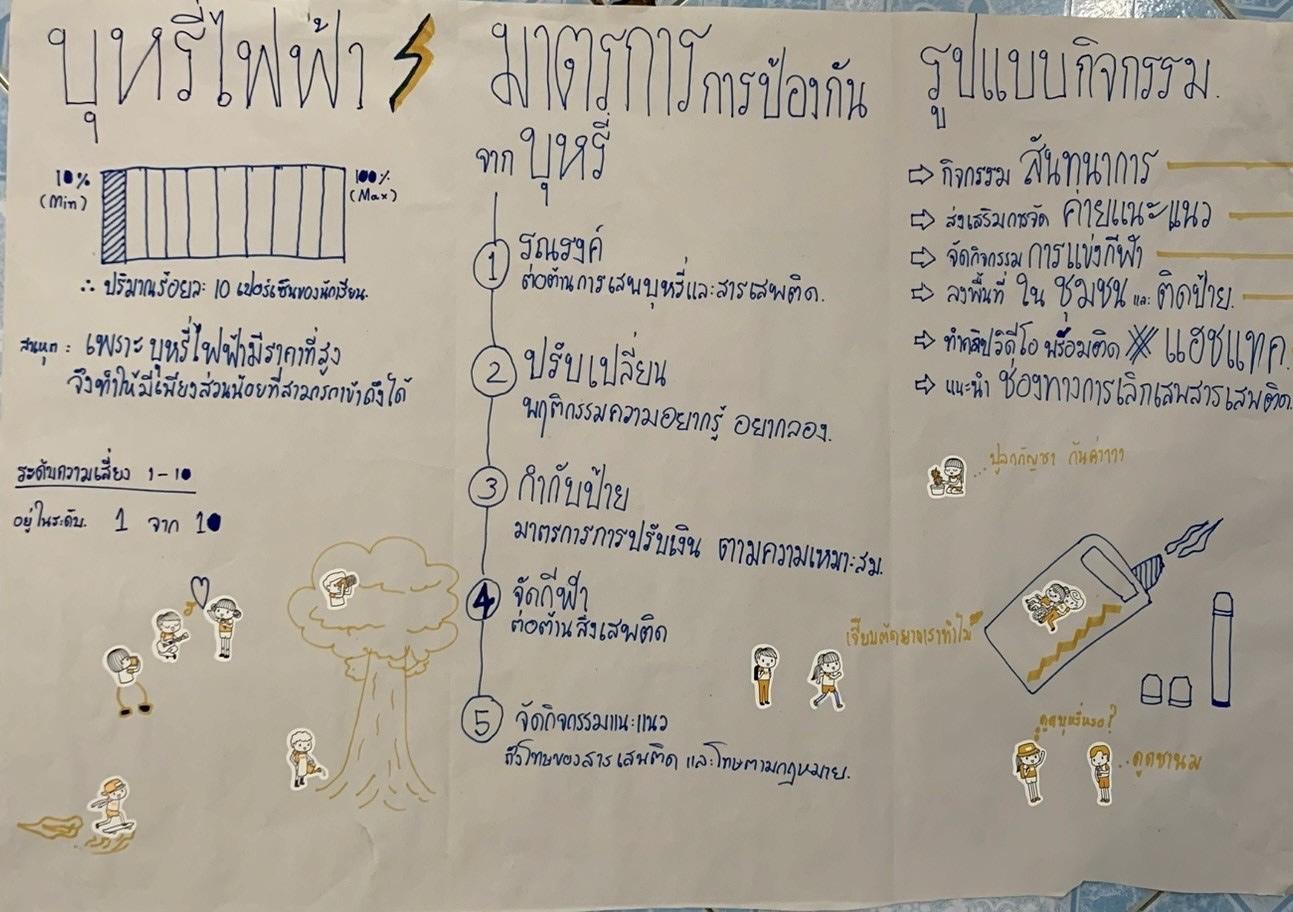 บุหรี่ไฟฟ้า
10% (Min)
100% (Max)
∴ ปริมาณร้อยละ 10 เปอร์เซ็นของนักเรียน.
สาเหตุ : เพราะบุหรี่ไฟฟ้ามีราคาที่สูง
จึงทำให้มีเพียงส่วนน้อยที่สามารถเข้าถึงได้
ระดับความเสี่ยง 1-10
อยู่ในระดับ. 1 จาก 10
มาตรการการป้องกัน
จาก บุหรี่
1 รณรงค์
ต่อต้านการเสพบุหรี่และสารเสพติด.
2 ปรับเปลี่ยน
พฤติกรรมความอยากรู้ อยากลอง.
3 กำกับป้าย
มาตรการการปรับเงิน ตามความเหมาะสม.
4 จัดกีฬา
ต่อต้านสิ่งเสพติด
5 จัดกิจกรรมแนะแนว
ถึงโทษของสารเสพติด และโทษตามกฎหมาย.
รูปแบบกิจกรรม.
⇨ กิจกรรม สันทนาการ
⇨ ส่งเสริมการจัด ค่ายแนะแนว
⇨ จัดกิจกรรม การแข่งกีฬา
⇨ ลงพื้นที่ ใน ชุมชน และ ติดป้าย.
⇨ ทำคลิปวิดีโอ พร้อมติด แฮชแทค
⇨ แนะนำ ช่องทางการเลิกเสพสารเสพติด.
...ปลูกกัญชา กันค่าาาา
ดูดบุหรี่หรอ?
..ดูดชานม